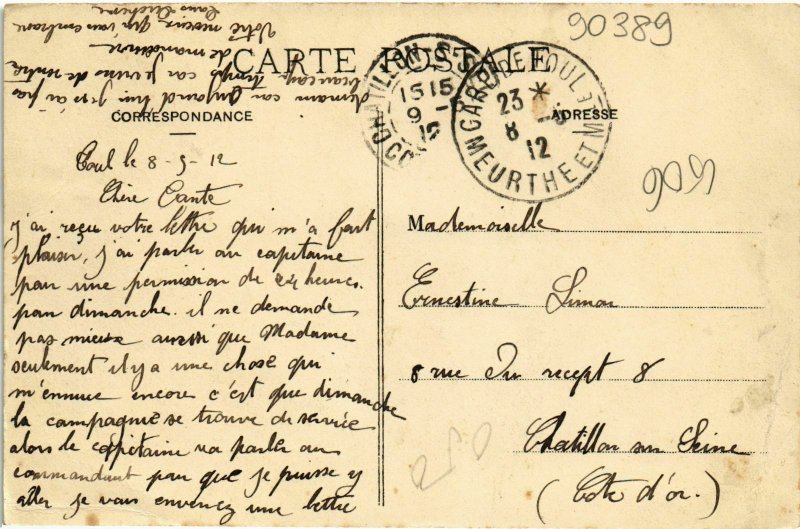 90389
CARTE POSTALE
CORRESPONDANCE
ADRESSE
GARE DE TOUL
23 *
8 -5
12
MEURTHE ET M
15 15
9 -
12
Toul le 8-5-12
Chère Tante
j'ai reçu votre lettre qui m'a fort
plaisir, j'ai parler au capitaine
pour une permission de 24 heures
pour dimanche. il ne demande
pas mieux aussi que Madame
seulement il y a une chose qui
m'ennuie encore c'est que dimanche
la campagnie se trouve de service
alors le capitaine va parler au
commandant pour que je puisse y
aller je vais envoyez une lettre
demain car aujourd'hui je n'ai pas
beaucoup trop car je viens de rentré
de manœuvre
Votre neveux qui vous embrasse
Mademoiselle
Ernestine Simon
8 rue du recept 8
Chatillon sur Seine
(Cote d'or.)
909
250